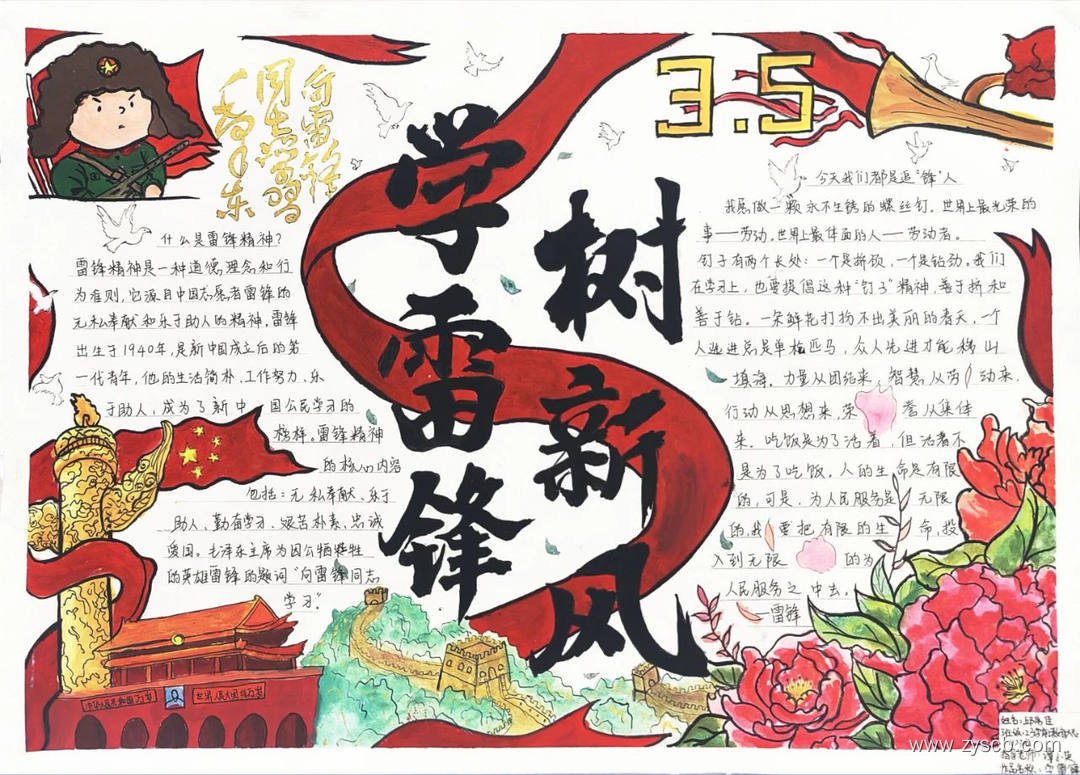 向雷锋
同志学习
毛泽东
3.5
学雷锋
树新风
什么是雷锋精神?
雷锋精神是一种道德理念和行
为准则,它源自中国志愿者雷锋的
无私奉献和乐于助人的精神。雷锋
出生于1940年,是新中国成立后的第
一代青年,他的生活简朴、工作努力、乐
于助人,成为了新中国公民学习的
榜样。雷锋精神
的核心内容
包括:无私奉献、乐于
助人、勤奋学习、艰苦朴素、忠诚
爱国。毛泽东主席为因公牺牲
的英雄雷锋的题词“向雷锋同志
学习”
今天我们都是追“锋”人
我愿做一颗永不生锈的螺丝钉。世界上最光荣的
事——劳动。世界上最体面的人——劳动者。
钉子有两个长处:一个是挤劲,一个是钻劲。我们
在学习上,也要提倡这种“钉子”精神,善于挤和
善于钻。一朵鲜花打扮不出美丽的春天,一个
人先进总是单枪匹马,众人先进才能移山
填海。力量从团结来,智慧从劳动来,
行动从思想来,荣誉从集体
来。吃饭是为了活着,但活着不
是为了吃饭。人的生命是有限
的,可是,为人民服务是无限
的,我要把有限的生命,投
入到无限的为
人民服务之中去。
—雷锋
中华人民共和国万岁
世界人民大团结万岁
姓名:
班级:
指导老师:
作品名称:学雷锋
www.zyscb.com